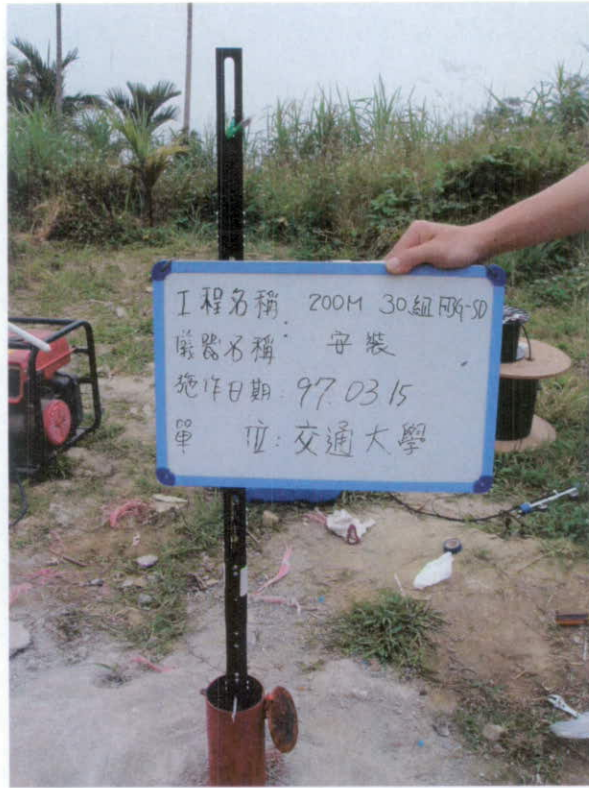 工程名稱: 200M 30組 FBG-SD
儀器名稱: 安裝
施作日期: 97.03.15
單 位: 交通大學